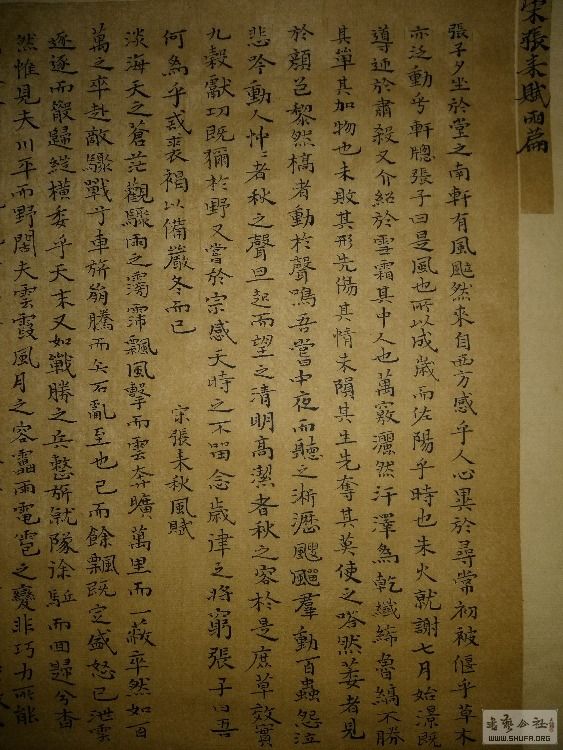 宋張耒賦兩篇
張子夕坐於堂之南軒有風飈然來自西方感乎人心異於尋常初被偃乎草木
亦泛動乎軒牕張子曰是風也所以成歲而佐陽乎時也朱火就謝七月始涼既
導迎於肅殺又介紹於雪霜其中人也萬竅灑然汗澤為乾纖絺魯縞不勝
其單其加物也未敗其形先傷其情未隕其生先奪其英使之嗒然萎者見
於顏色黎然槁者動於聲鳴吾嘗中夜而聽之淅瀝颼飀羣動百蟲怨泣
悲吟動人忡忡者秋之聲旦起而望之清明高潔者秋之容於是庶草效實
九穀獻功既獮於野又嘗於宗感天時之不留念歲律之將窮張子曰吾
何為乎或裘褐以備嚴冬而已
宋張耒秋風賦
淡海天之蒼茫觀驟雨之霶霈飄風擊而雲奔曠萬里而一蔽卒然如百
萬之卒赴敵驟戰兮車旂崩騰而矢石亂至也已而餘飄既定盛怒已泄雲
逐逐而散歸縱橫委乎天末又如戰勝之兵整旂就隊徐驅而回歸兮杳
然惟見夫川平而野闊夫雲霞風月之容靁雨電雹之變非巧力所能
書藝公社
WWW.SHUFA.ORG